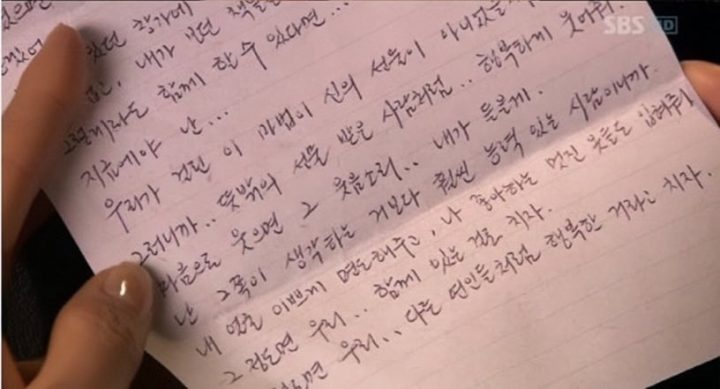 SBS HD
있던 창가에
내가 보던 책들
그렇게라도 함께 할 수 있다면...
지금에야 난...
우리가 걸린 이 마법이 신의 선물이 아니었을
그러니까.. 뜻밖의 선물 받은 사람처럼.. 행복하게 웃어줘.
마음으로 웃으면 그 웃음소리.. 내가 들을게.
난 그쪽이 생각하는 거보다 훨씬 능력 있는 사람이니까.
내 얼굴 이쁘게 면도해주고, 나 좋아하는 멋진 옷들도 입혀줘
그 정도면 우리.. 함께 있는 걸로 치자.
정도면 우리.. 다른 연인들처럼 행복한 거라고 치자.